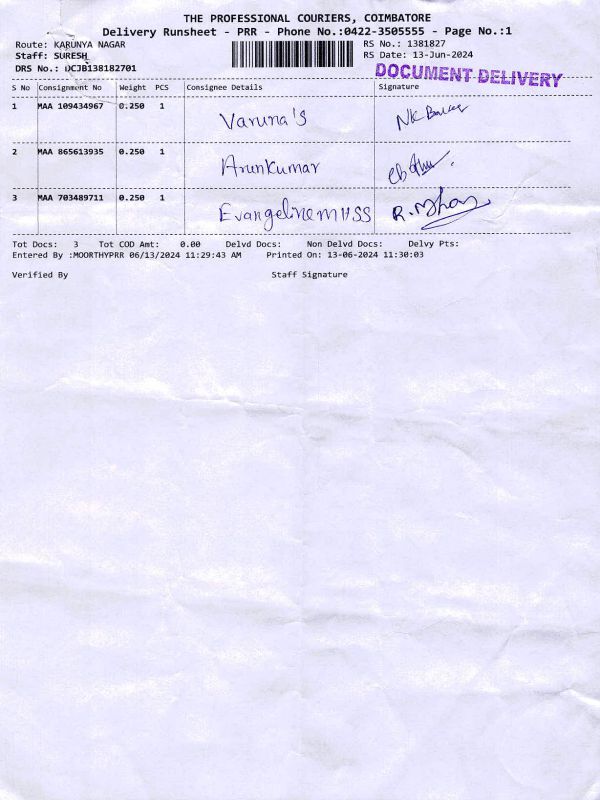 THE PROFESSIONAL COURIERS, COIMBATORE
Delivery Runsheet - PRR - Phone No.:0422-3505555 - Page No.:1
Route: KARUNYA NAGAR RS No.: 1381827
Staff: SURESH RS Date: 13-Jun-2024
DRS No.: DCJB138182701 DOCUMENT DELIVERY
S No Consignment No Weight PCS Consignee Details Signature
1 MAA 109434967 0.250 1 Varuna's
2 MAA 865613935 0.250 1 Arunkumar
3 MAA 703489711 0.250 1 Evangeline MHSS
Tot Docs: 3 Tot COD Amt: 0.00 Delvd Docs: Non Delvd Docs: Delvy Pts:
Entered By :MOORTHYPRR 06/13/2024 11:29:43 AM Printed On: 13-06-2024 11:30:03
Verified By Staff Signature